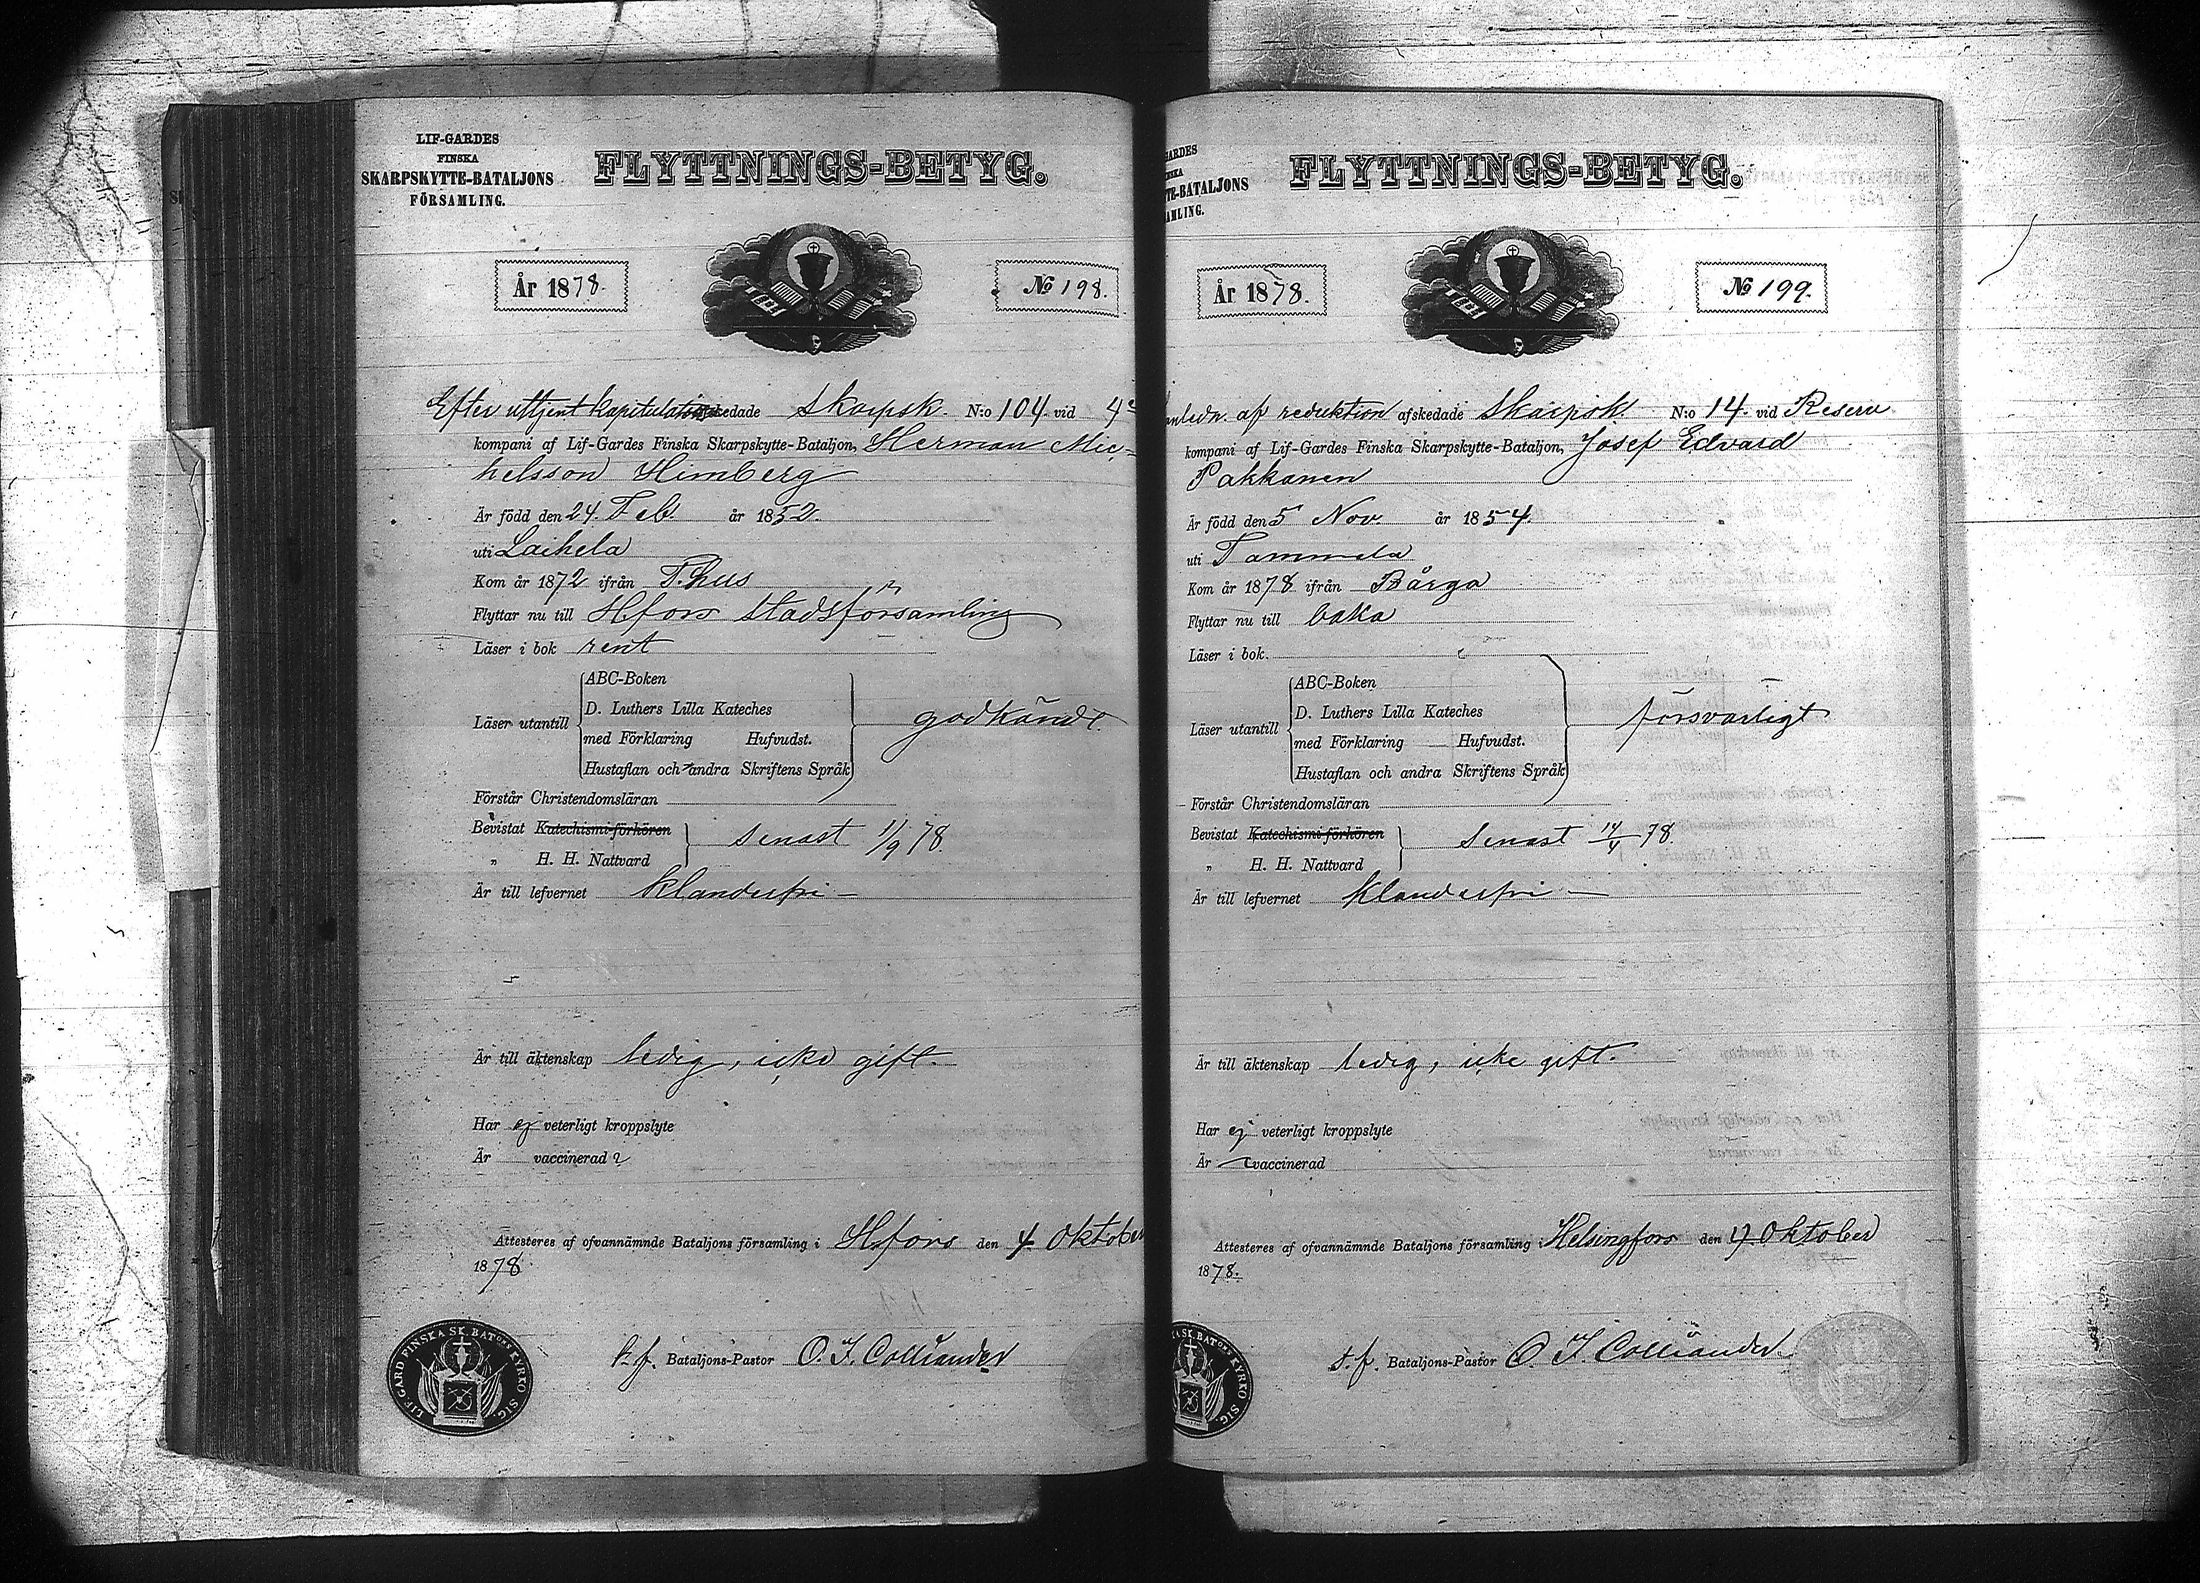 LIF-GARDES
FINSKA
SKARPSKYTTE-BATALJONS
FÖRSAMLING.
FLYTTNINGS-BETYG.
År 1878.
No 198.
Efter uttjent kapitulation afskedade Skarpsk. N:o 104 vid 4e
kompani af Lif-Gardes Finska Skarpskytte-Bataljon, Herman Mic-
helsson Himberg
Är född den 24. Feb. år 1852.
uti Laihela
Kom år 1872 ifrån T.hus
Flyttar nu till Hfors stadsförsamling
Läser i bok rent
Läser utantill
ABC-Boken
D. Luthers Lilla Kateches
med Förklaring Hufvudst.
Hustaflan och andra Skriftens Språk
godkändt.
Förstår Christendomsläran
Bevistat Katechismi-förhören
„ H. H. Nattvard
senast 1/9 78.
Är till lefvernet klanderfri –
Är till äktenskap ledig, icke gift.
Har ej veterligt kroppslyte
Är vaccinerad
Attesteres af ofvannämnde Bataljons församling i Hfors den 4 Oktober
1878.
LIF. GARD FINSKA SK. BATONS KYRKO SIG.
t. f. Bataljons-Pastor O. I. Colliander
GARDES
SKA
TE-BATALJONS
AMLING.
FLYTTNINGS-BETYG.
År 1878.
No 199.
anledn. af reduktion afskedade Skarpsk. N:o 14. vid Reserv
kompani af Lif-Gardes Finska Skarpskytte-Bataljon, Josef Edvard
Pakkanen
Är född den 5 Nov. år 1854.
uti Tammela
Kom år 1878 ifrån Bårgo
Flyttar nu till baka
Läser i bok.
Läser utantill
ABC-Boken
D. Luthers Lilla Kateches
med Förklaring Hufvudst.
Hustaflan och andra Skriftens Språk
försvarligt
Förstår Christendomsläran
Bevistat Katechismi-förhören
„ H. H. Nattvard
Senast 14/4 78.
Är till lefvernet klanderfri –
Är till äktenskap ledig, icke gift.
Har ej veterligt kroppslyte
Är vaccinerad
Attesteres af ofvannämnde Bataljons församling i Helsingfors den 4 Oktober
1878.
KA SK. BATONS KYRKO SIG.
t. f. Bataljons-Pastor O. I. Colliander.